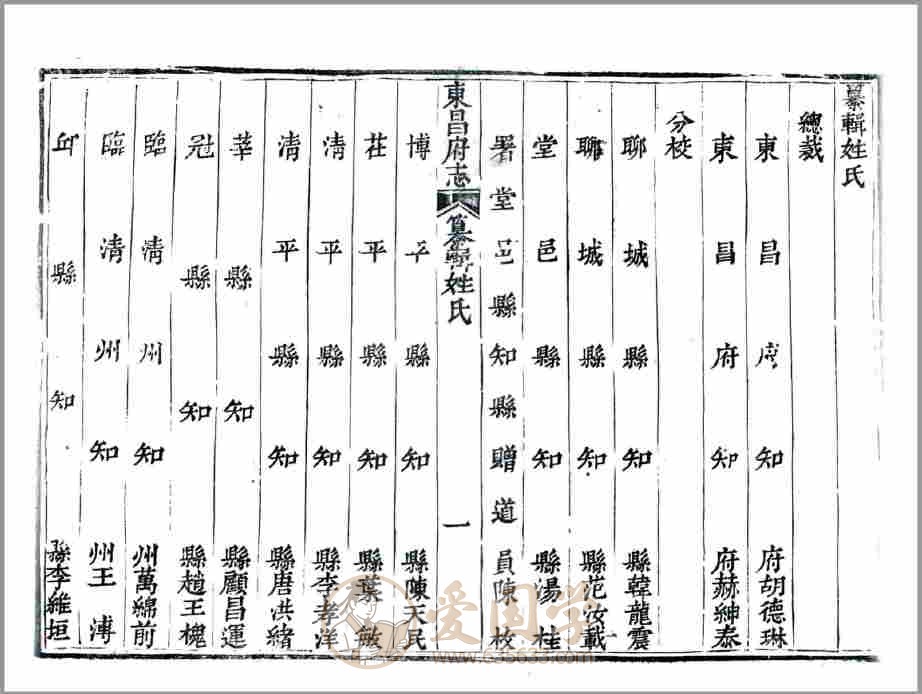 纂輯姓氏
總裁
東昌府知府胡德琳
東昌府知府赫紳泰
分校
聊城縣知縣韓龍震
聊城縣知縣范汝載
堂邑縣知縣湯桂
署堂邑縣知縣贈道員陳枚
東昌府志 纂輯姓氏 一
博平縣知縣陳天民
茌平縣知縣葉敏
清平縣知縣李孝洋
清平縣知縣唐洪緒
莘縣知縣顧昌運
冠縣知縣趙王槐
臨清州知州萬綿前
臨清州知州王溥
邱縣知縣李維垣
爱国学
www.635033.com